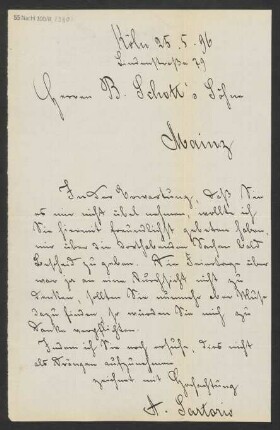 Köln 25. 5. 96
Lindenstraße 79
Herren B. Schott's Söhne
Mainz
In der Erwartung, daß Sie
es mir nicht übel nehmen, wollte ich
Sie hiermit freundlichst gebeten haben,
mir über die dortliegenden Sachen bald
Bescheid zu geben. Am Feiertage über
war ja an eine Durchsicht nicht zu
denken, sollten Sie nunmehr eben Muße
dazu finden, so würden Sie mich zu
Danke verpflichten.
Indem ich Sie noch ersuche, dies nicht
als Drängen aufzunehmen
zeichnet mit Hochachtung
A. Sartorio